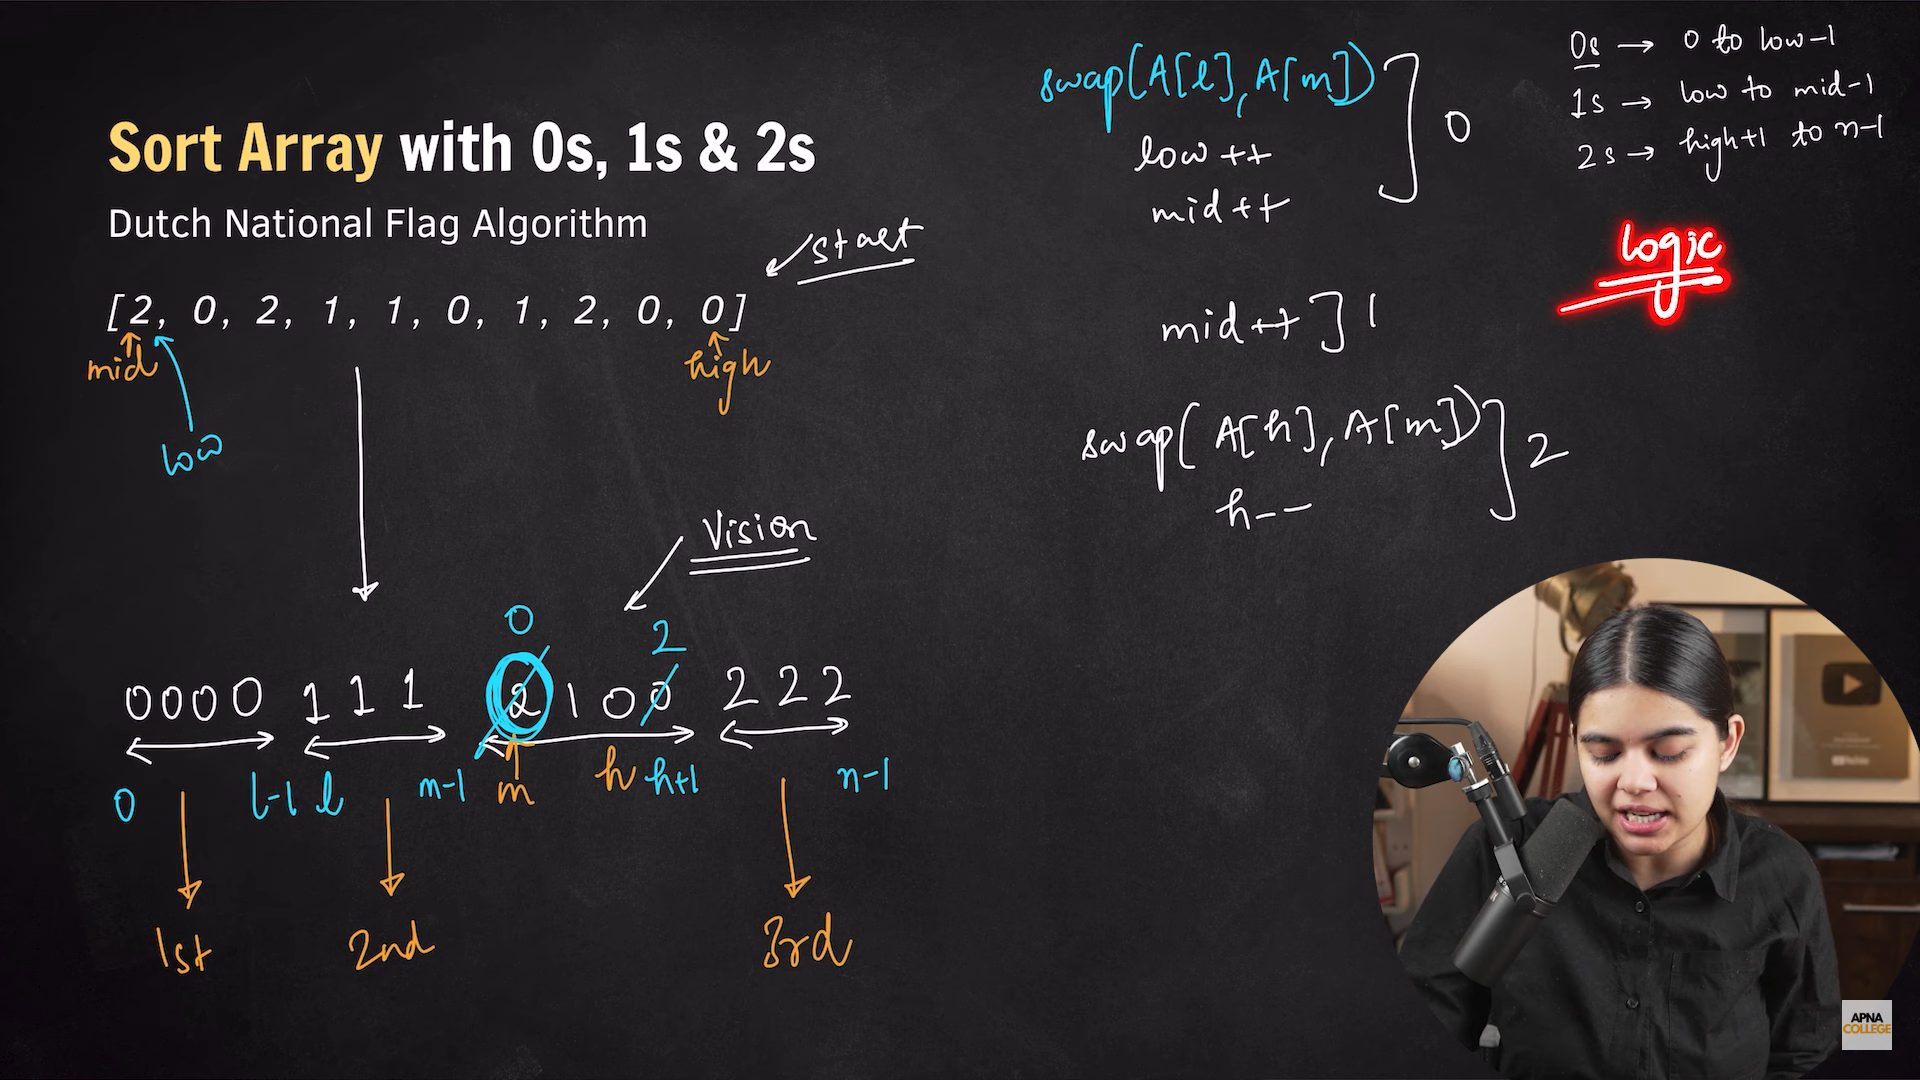 Sort Array with 0s, 1s & 2s
Dutch National Flag Algorithm
start
[2, 0, 2, 1, 1, 0, 1, 2, 0, 0]
mid
high
low
Vision
0
2
0000 111 2100 222
0 l-1 l m-1 m h h+1 n-1
1st 2nd 3rd
swap(A[l], A[m])
low++
mid++
] 0
mid++ ] 1
swap(A[h], A[m])
h--
] 2
0s → 0 to low-1
1s → low to mid-1
2s → high+1 to n-1
logic
APNA
COLLEGE